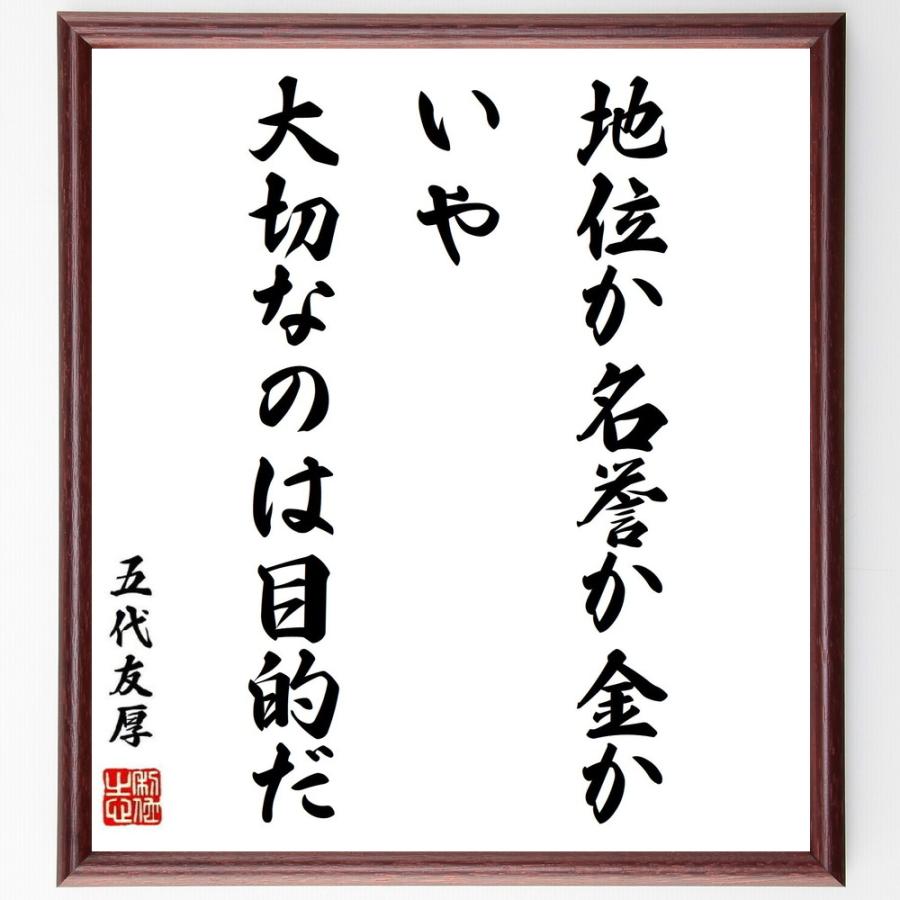 地位か名誉か金か
いや
大切なのは目的だ
五代友厚